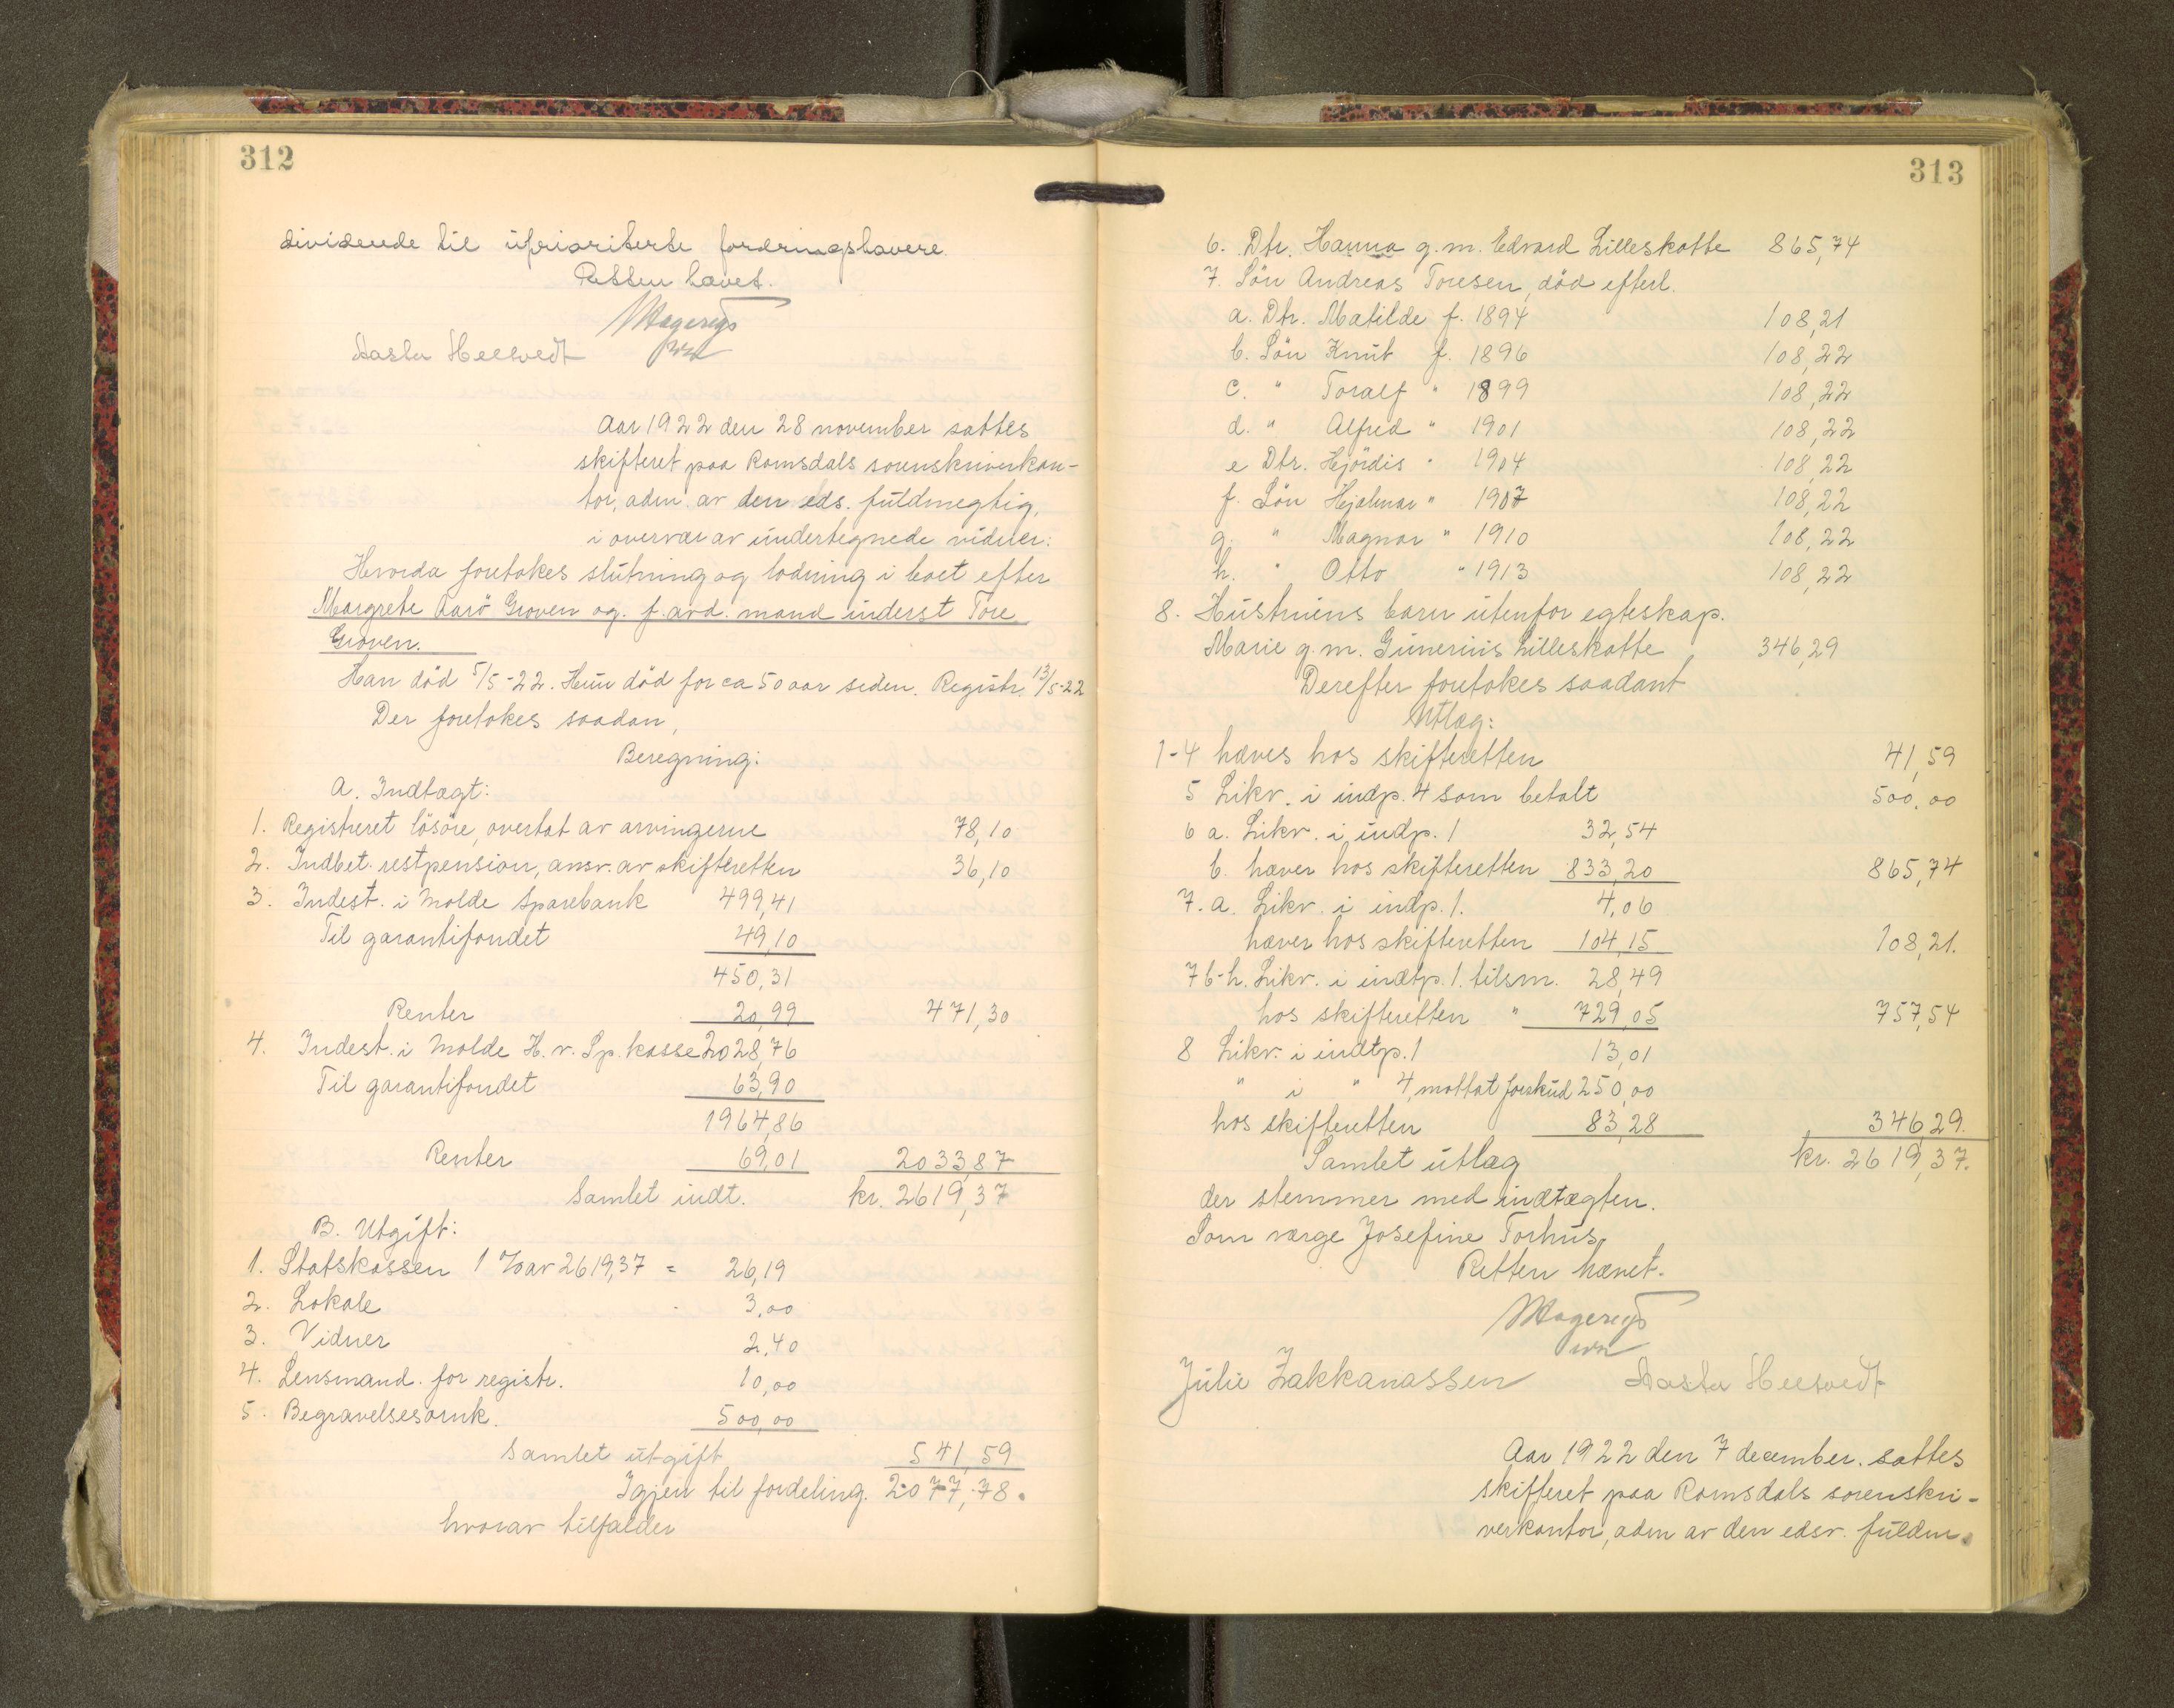 312
dividende til uprioriterte fordringshavere.
Retten hævet.
Aasta Heesvedt
Aar 1922 den 28 november sattes
skifteret paa Romsdals sorenskriverkon-
tor, adm. av den eds. fuldmegtig,
i overvær av undertegnede vidner:
Hvorda foretokes slutning og lodning i boet efter
Margrete Aarö Groven og f. avd. mand inderst Tore
Groven.
Han död 5/5-22. Hun död for ca 50 aar siden. Registr. 13/5-22
Der foretokes saadan,
Beregning:
A. Indtægt:
1. Registreret lösöre, overtat av arvingerne 78,10
2. Indbet. restpension, ansv. av skifteretten 36,10
3. Indest. i Molde Sparebank 499,41
Til garantifondet 49,10
450,31
Renter 20,99 471,30
4. Indest. i Molde H. v. Sp. kasse 2028,76
Til garantifondet 63,90
1964,86
Renter 69,01 2033,87
Samlet indt. kr. 2619,37
B. Utgift:
1. Statskassen 1 % av 2619,37 = 26,19
2. Lokale 3,00
3. Vidner 2,40
4. Lensmand. for registr. 10,00
5. Begravelsesomk. 500,00
Samlet utgift 541,59
Igjen til fordeling. 2077,78.
hvorav tilfalder
313
6. Dtr. Hanna g. m. Edvard Lilleskatte 865,74
7. Sön Andreas Toresen, död efterl.
a. Dtr. Matilde f. 1894 108,21
b. Sön Knut f. 1896 108,22
c. " Toralf " 1899 108,22
d. " Alfred " 1901 108,22
e Dtr. Hjördis " 1904 108,22
f. Sön Hjalmar " 1907 108,22
g. " Magnar " 1910 108,22
h. " Otto " 1913 108,22
8. Hustruens barn utenfor egteskap.
Marie g. m. Gunerius Lilleskatte 346,29
Derefter foretokes saadant
Utlæg:
1-4 hæves hos skifteretten 41,59
5 Likv. i indp. 4 som betalt 500,00
6 a. Likv. i indp. 1 32,54
b. hæver hos skifteretten 833,20 865,74
7. a. Likv. i indp. 1. 4,06
hæver hos skifteretten 104,15 108,21.
7 b-h. Likv. i indtp. 1. tilsm. 28,49
hos skifteretten " 729,05 757,54
8 Likv. i indtp. 1 13,01
" i " 4, mottat forskud 250,00
hos skifteretten 83,28 346,29.
Samlet utlæg kr. 2619,37.
der stemmer med indtægten.
Som værge Josefine Torhus.
Retten hævet.
Julie Zakkariassen Aasta Heesvedt
Aar 1922 den 7 december. sattes
skifteret paa Romsdals sorenskri-
verkontor, adm av den edsv. fuldm.